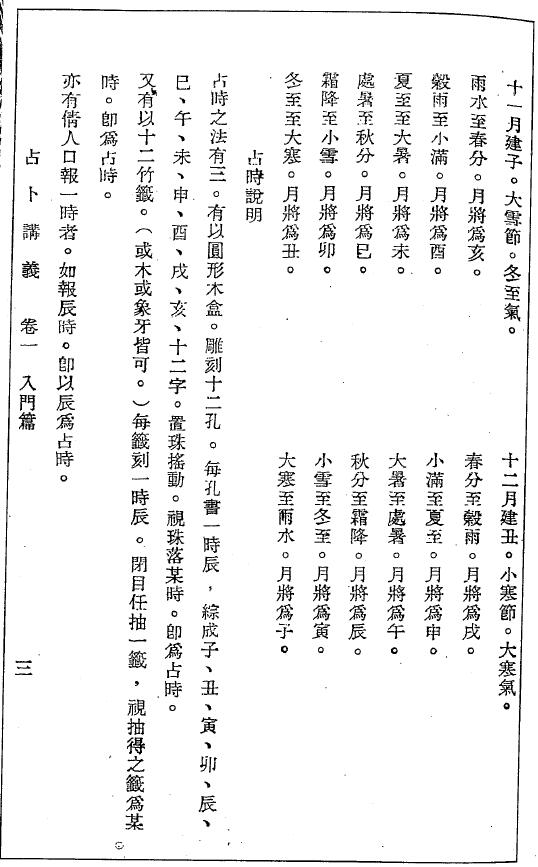 十一月建子。大雪節。冬至氣。
十二月建丑。小寒節。大寒氣。
雨水至春分。月將爲亥。
春分至穀雨。月將爲戌。
穀雨至小滿。月將爲酉。
小滿至夏至。月將爲申。
夏至至大暑。月將爲未。
大暑至處暑。月將爲午。
處暑至秋分。月將爲巳。
秋分至霜降。月將爲辰。
霜降至小雪。月將爲卯。
小雪至冬至。月將爲寅。
冬至至大寒。月將爲丑。
大寒至雨水。月將爲子。
占時說明
占時之法有三。有以圓形木盒。雕刻十二孔。每孔書一時辰，綜成子、丑、寅、卯、辰、
巳、午、未、申、酉、戌、亥、十二字。置珠搖動。視珠落某時。卽爲占時。
又有以十二竹籤。（或木或象牙皆可。）每籤刻一時辰。閉目任抽一籤，視抽得之籤爲某
時。卽爲占時。
亦有倩人口報一時者。如報辰時。卽以辰爲占時。
占卜講義 卷一 入門篇
三